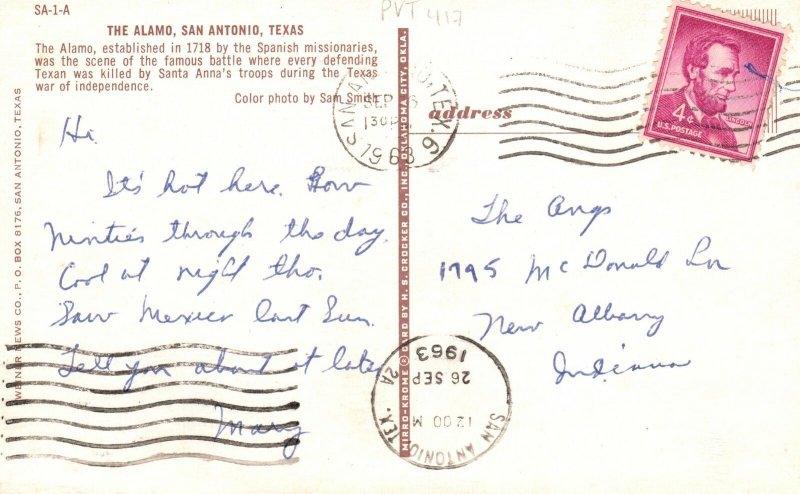 SA-1-A
PVT 417
THE ALAMO, SAN ANTONIO, TEXAS
The Alamo, established in 1718 by the Spanish missionaries,
was the scene of the famous battle where every defending
Texan was killed by Santa Anna's troops during the Texas
war of independence.
Color photo by Sam Smith
WEINER NEWS CO., P. O. BOX 8176, SAN ANTONIO, TEXAS
Hi.
It's hot here.
Ninties through the day.
Cool at night tho.
Saw Mexico last Sun.
Tell you about it later
Mary
MIRRO-KROME ® CARD BY H. S. CROCKER CO., INC., OKLAHOMA CITY, OKLA.
SAN ANTONIO, TEX. 9
SEP
130
1963
address
4¢
LINCOLN
U.S. POSTAGE
The Angs
1795 McDonald Ln
New Albany
Indiana
SAN ANTONIO, TEX. 2A
12 00 M
26 SEP
1963